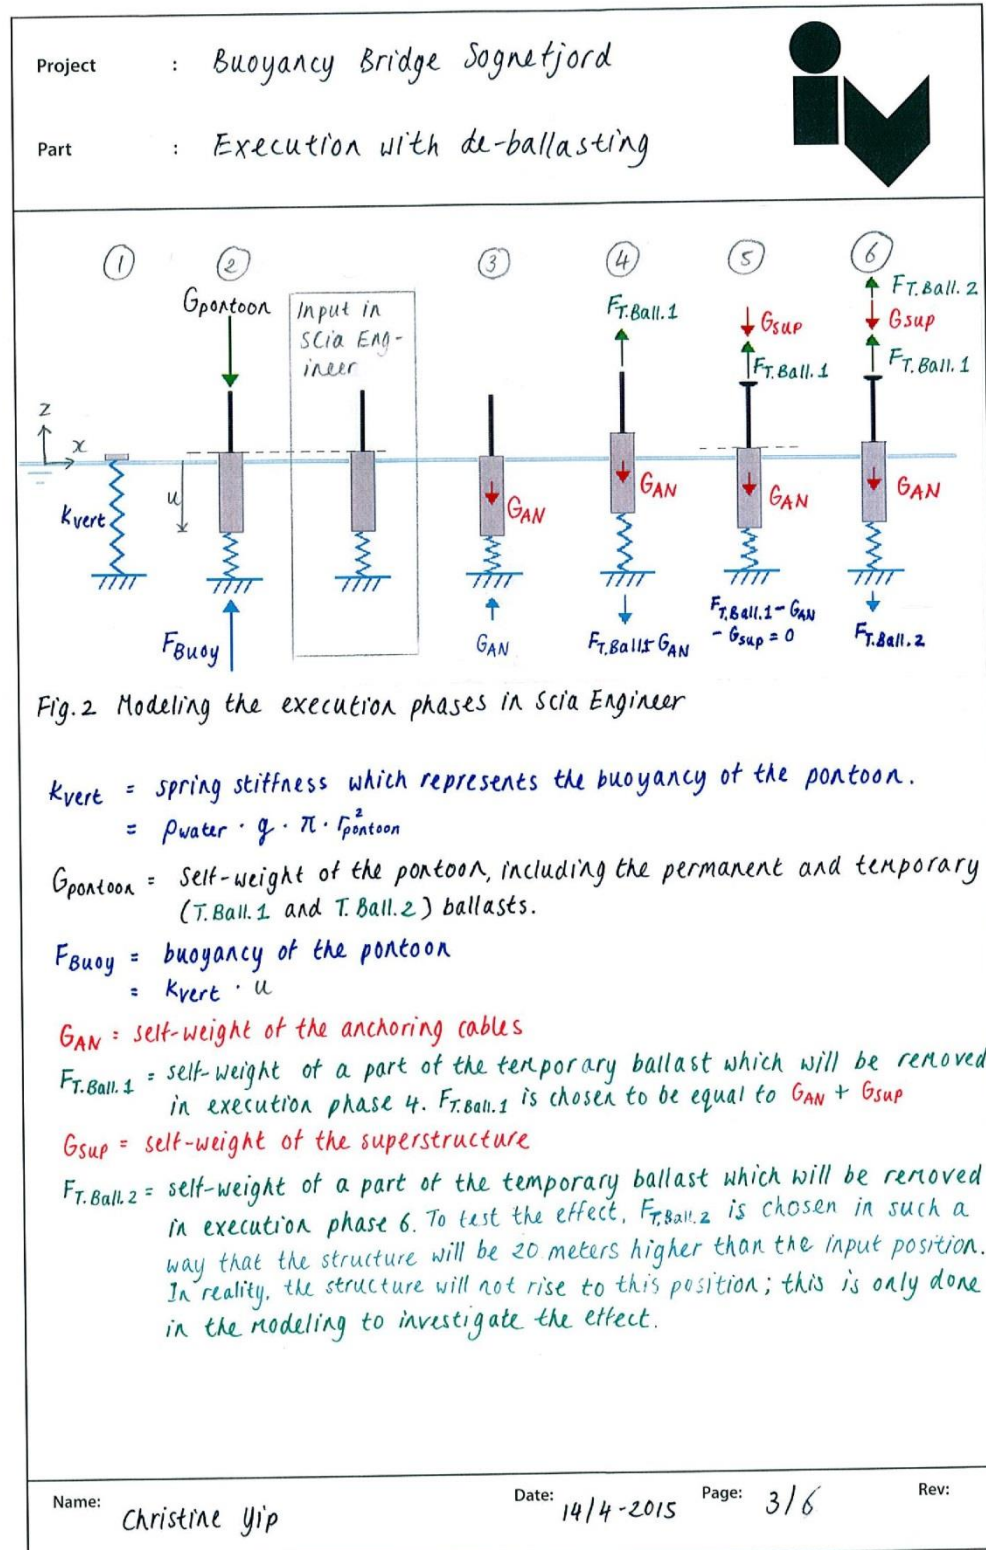 Project : Buoyancy Bridge Sognefjord
Part : Execution with de-ballasting
iv
1 2 3 4 5 6
Gpontoon
Input in
Scia Eng-
ineer
FT.Ball.1
Gsup
FT.Ball.1
FT.Ball.2
Gsup
FT.Ball.1
z
x
u
Kvert
GAN
GAN
GAN
GAN
FBuoy
GAN
FT.Ball1-GAN
FT.Ball.1-GAN
-Gsup=0
FT.Ball.2
Fig.2 Modeling the execution phases in Scia Engineer
Kvert = spring stiffness which represents the buoyancy of the pontoon.
= ρwater · g · π · r²pontoon
Gpontoon = Self-weight of the pontoon, including the permanent and temporary
(T.Ball.1 and T.Ball.2) ballasts.
FBuoy = buoyancy of the pontoon
= Kvert · u
GAN = self-weight of the anchoring cables
FT.Ball.1 = self-weight of a part of the temporary ballast which will be removed
in execution phase 4. FT.Ball.1 is chosen to be equal to GAN + Gsup
Gsup = self-weight of the superstructure
FT.Ball.2 = self-weight of a part of the temporary ballast which will be removed
in execution phase 6. To test the effect, FT.Ball.2 is chosen in such a
way that the structure will be 20 meters higher than the input position.
In reality, the structure will not rise to this position; this is only done
in the modeling to investigate the effect.
Name: Christine Yip Date: 14/4-2015 Page: 3/6 Rev: